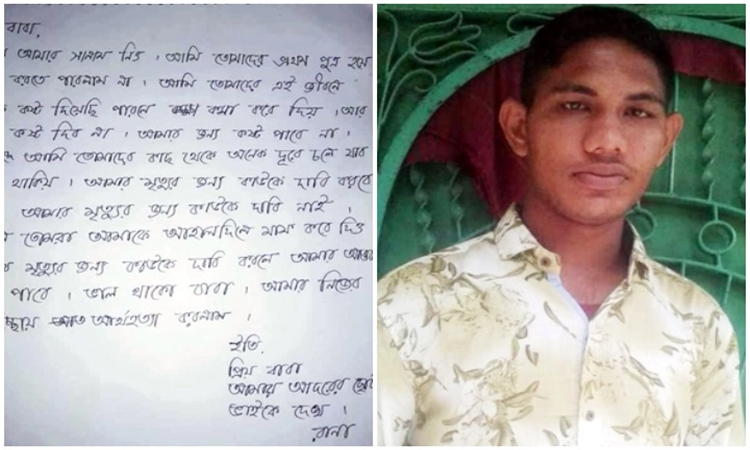 বাবা,
আমার সালাম নিও । আমি তোমাদের প্রথম পুত্র হয়ে
করতে পারলাম না । আমি তোমাদের এই জীবনে
কষ্ট দিয়েছি পারলে ক্ষমা করে দিয় । আর
কষ্ট দিব না । আমার জন্য কষ্ট পাবে না ।
আমি তোমাদের কাছ থেকে অনেক দূরে চলে যাব
থাকিয় । আমার মৃত্যুর জন্য কাউকে দাবি করবে
আমার মৃত্যুর জন্য কাউকে দাবি নাই ।
তোমরা আমাকে মাফ করে দিও
মৃত্যুর জন্য কাউকে দাবি করলে আমার
পাবে । ভাল থাকো বাবা । আমার নিজের
করলাম ।
ইতি,
প্রিয় বাবা
আমার আদরের
ভাইকে দেখ ।
রানা